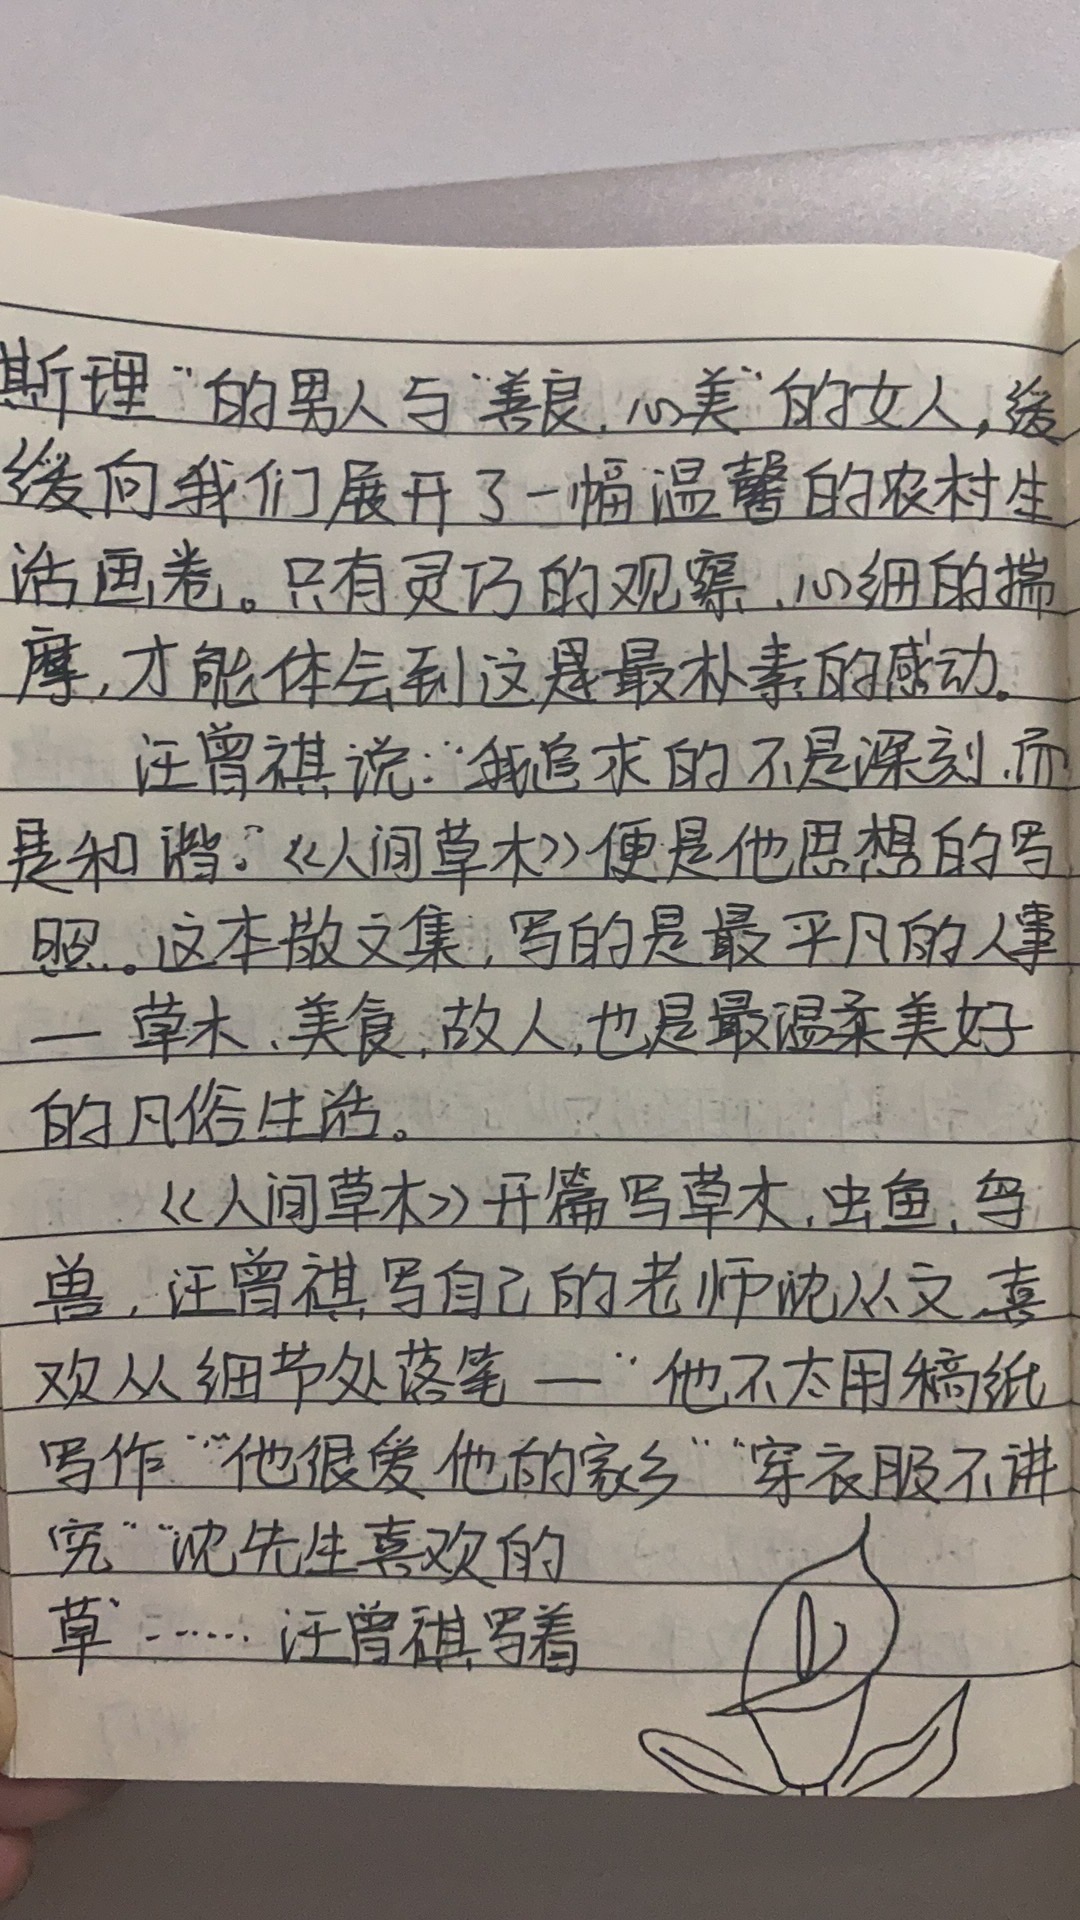 斯理”的男人与“善良、心美”的女人，缓
缓向我们展开了一幅温馨的农村生
活画卷。只有灵巧的观察、心细的揣
摩，才能体会到这是最朴素的感动。
汪曾祺说：“我追求的不是深刻，而
是和谐。”《人间草木》便是他思想的写
照。这本散文集，写的是最平凡的人事
—草木、美食、故人，也是最温柔美好
的凡俗生活。
《人间草木》开篇写草木、虫鱼、鸟
兽，汪曾祺写自己的老师沈从文，喜
欢从细节处落笔—“他不太用稿纸
写作”“他很爱他的家乡”“穿衣服不讲
究”“沈先生喜欢的
草”……汪曾祺写着